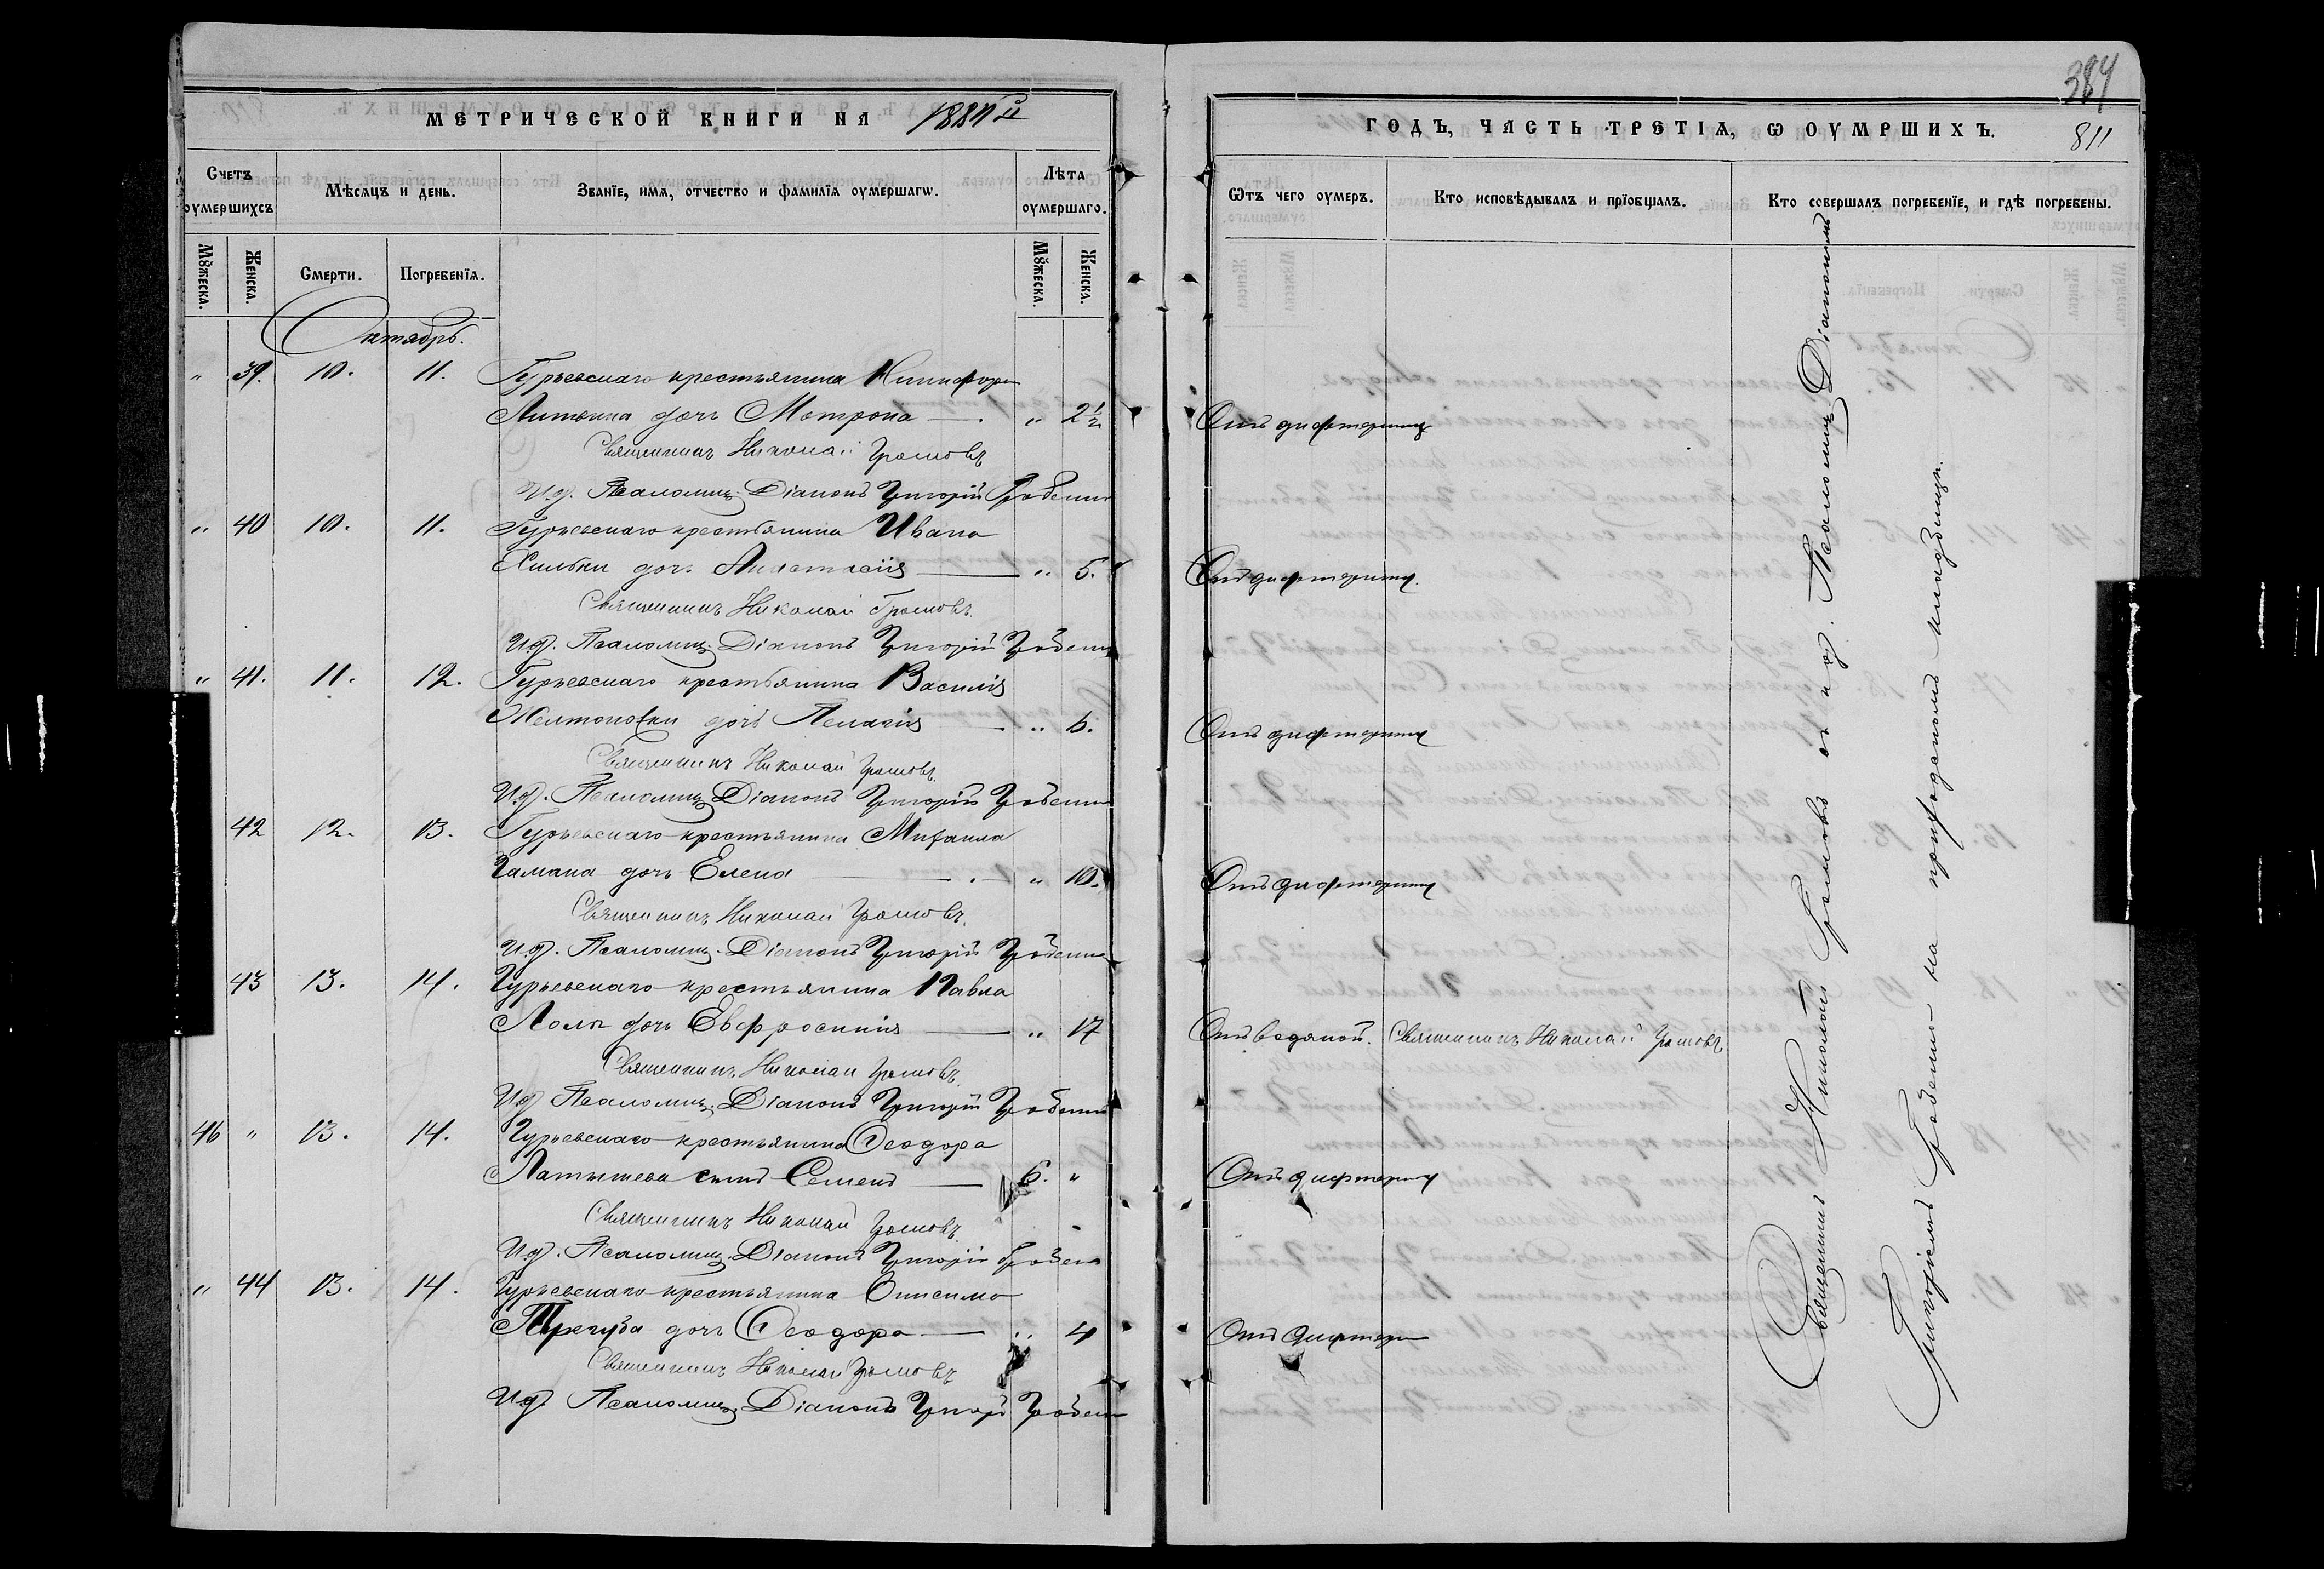 МЕТРИЧЕСКОЙ КНИГИ НА 188
Счетъ оумершихсъ
Мѣсяцъ и день.
Званїе, имя, отчество и фамилїя оумершагѡ.
Лѣта оумершаго.
Мꙋжеска.
Женска.
Смерти.
Погребенїя.
Мꙋжеска.
Женска.
Октябрь.
" 39. 10. 11. Гурьевскаго крестьянина Никифора
дочь Матрона — " 2½
Священникъ Николай Громовъ
И.д. Псаломщ. Діаконъ Григорій Гребенни
" 40 10. 11. Гурьевскаго крестьянина Ивана
Хилька доч. Анастасія — " 5.
Священникъ Николай Громовъ.
И.д. Псаломщ. Діаконъ Григорій
" 41. 11. 12. Гурьевскаго крестьянина Василія
Желтоножки дочь Пелагія — " 6.
Священникъ Николай Громовъ.
И.д. Псаломщ. Діаконъ Григорій
42 12. 13. Гурьевскаго крестьянина Михаила
Гамана дочь Елена — " 10.
Священникъ Николай Громовъ.
И.д. Псаломщ. Діаконъ Григорій
43 13. 14. Гурьевскаго крестьянина Павла
дочь Евфросинія — " 17
Священникъ Николай Громовъ.
И.д. Псаломщ. Діаконъ Григорій
46 " 13. 14. Гурьевскаго крестьянина Ѳеодора
Латышева сынъ Семенъ — 6. "
Священникъ Николай Громовъ.
И.д. Псаломщ. Діаконъ Григорій
" 44 13. 14. Гурьевскаго крестьянина Онисима
дочь Ѳеодора — " 4
Священникъ Николай Громовъ
И.д. Псаломщ. Діаконъ
384
ГОДЪ, ЧАСТЬ ТРЕТІѦ, Ѡ ОУМРШИХЪ.
811
Ѿтъ чего оумеръ.
Кто исповѣдывалъ и прїобщалъ.
Кто совершалъ погребенїе, и гдѣ погребены.
Отъ дифтерита
Отъ дифтерита.
Отъ дифтерита
Отъ дифтерита
Отъ водяной. Священникъ Николай Громовъ
Отъ дифтерита
Отъ дифтери
Священникъ Николай Громовъ съ и.д. Псаломщ. Діакономъ
Григоріемъ на приходскомъ кладбищѣ.